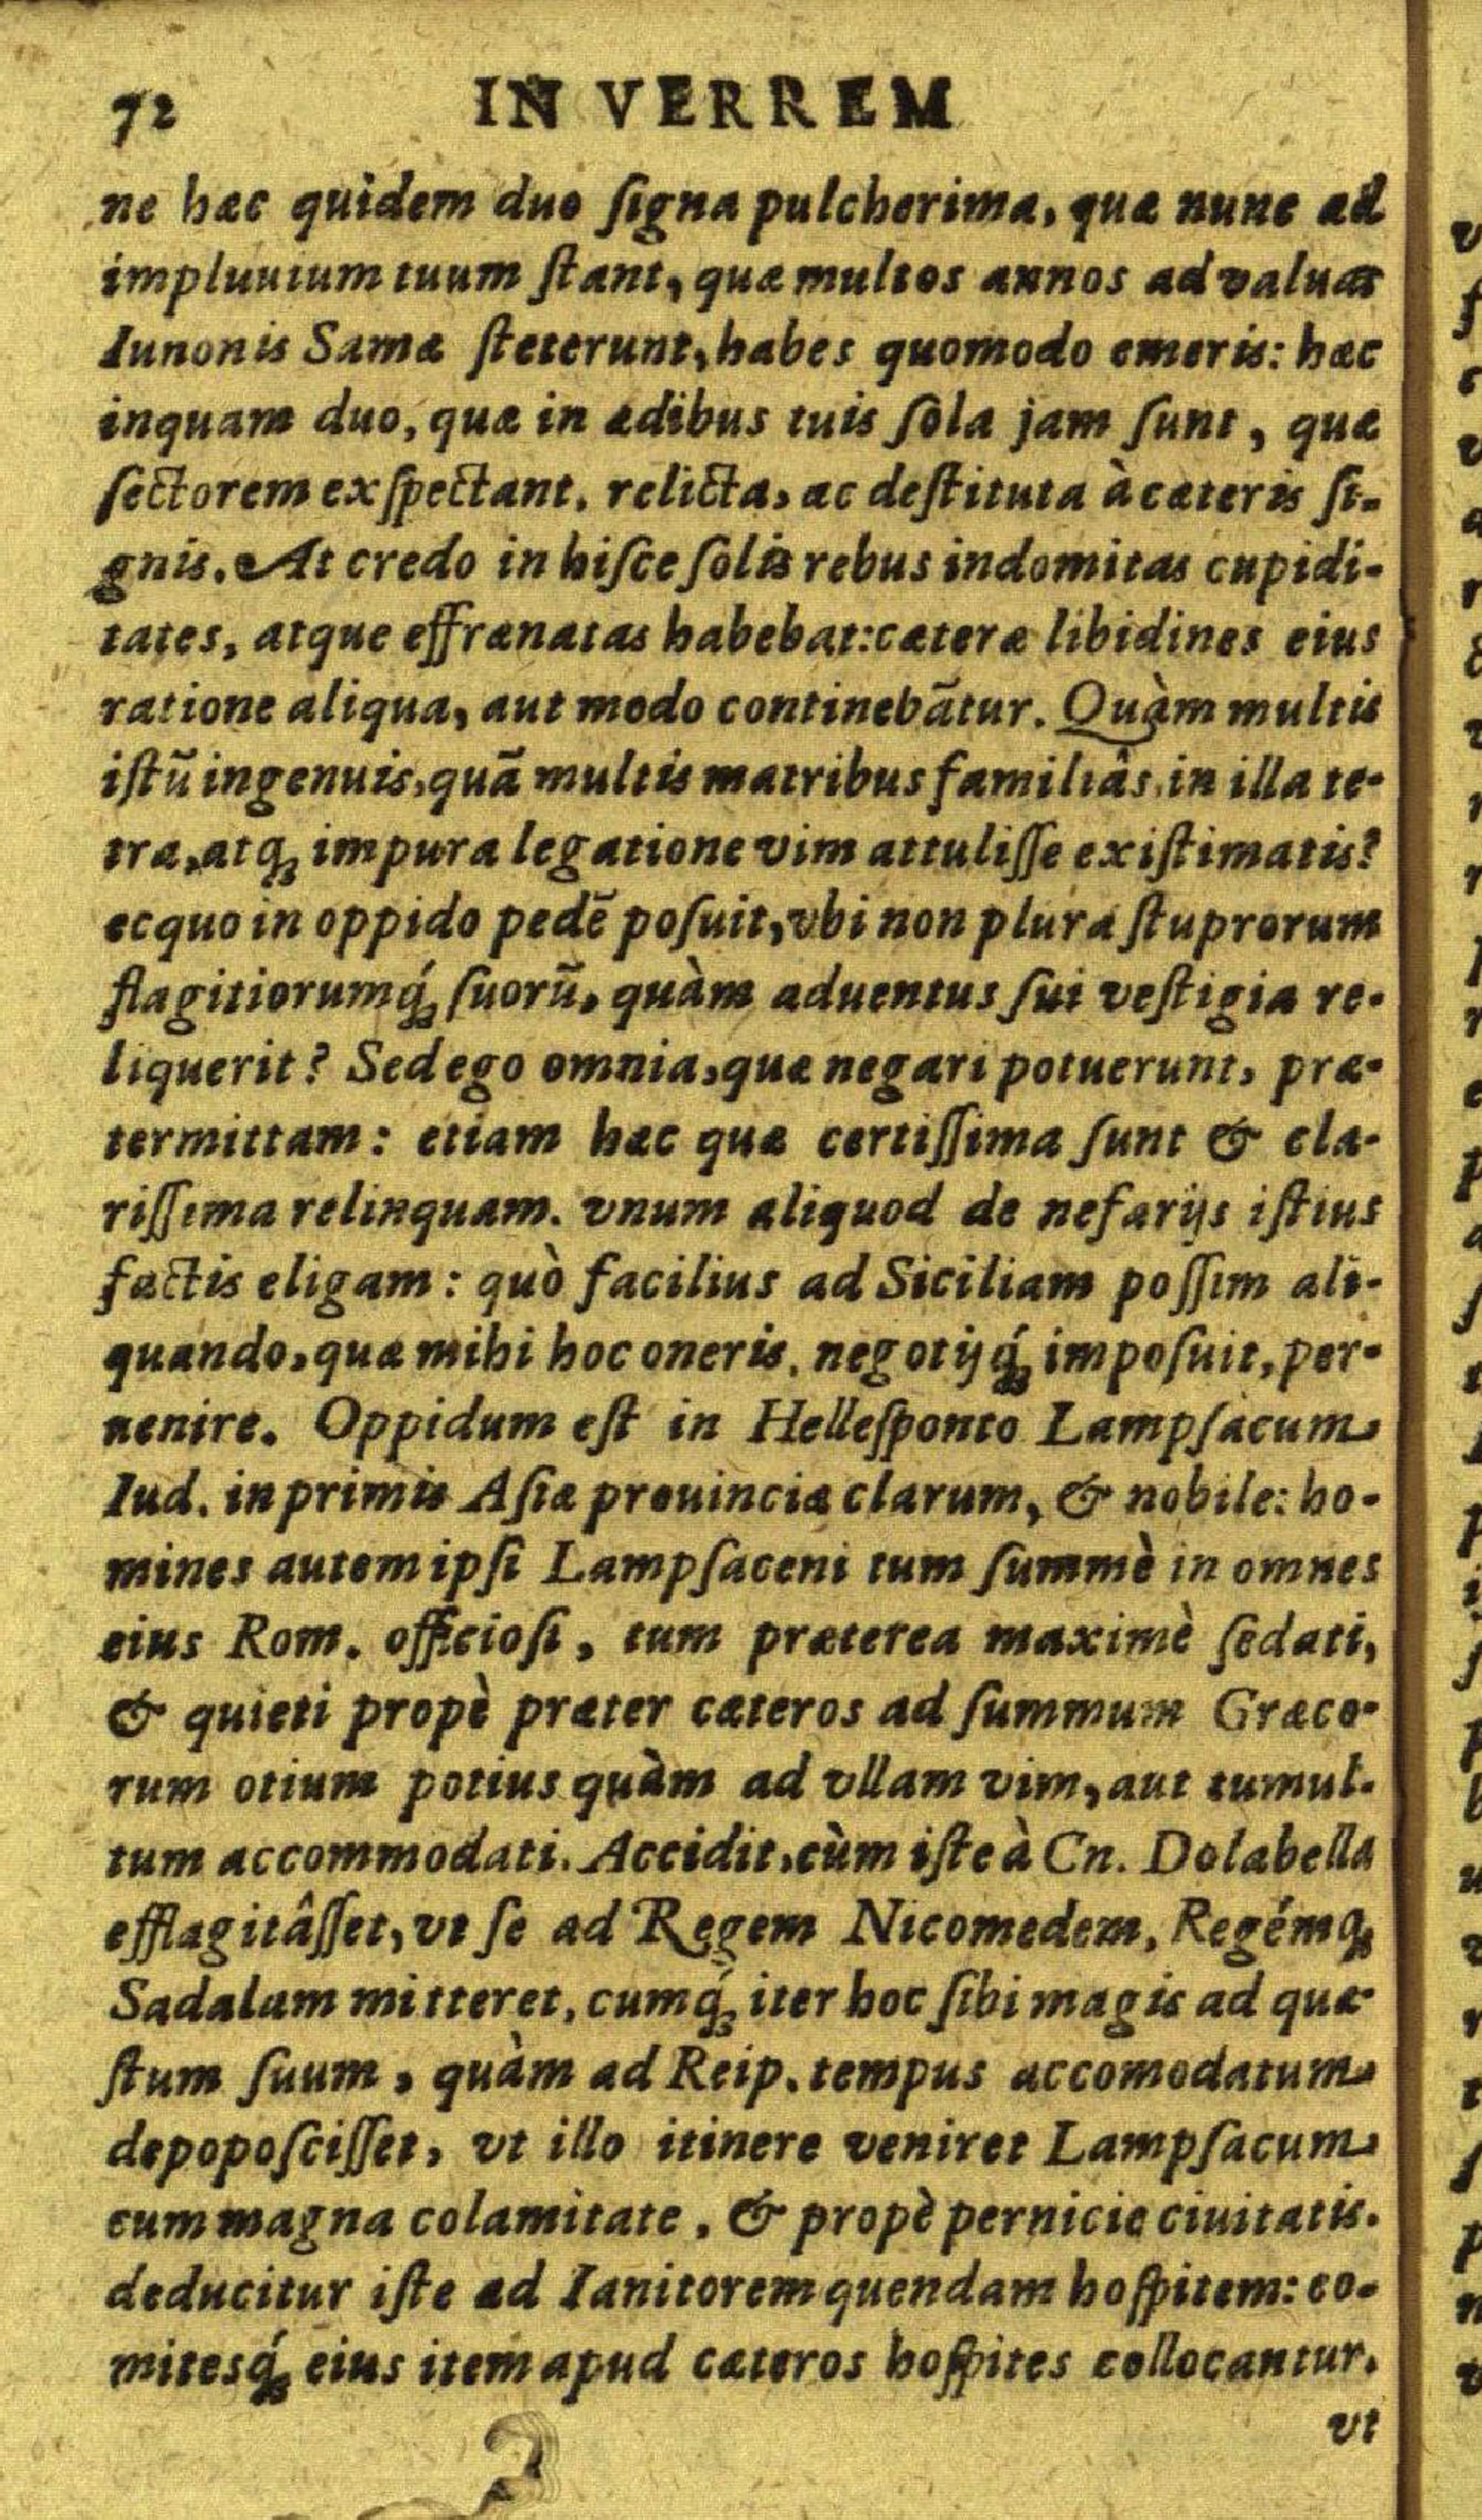 72 IN VERREM
ne hæc quidem duo ſigna pulcherima, quæ nunc ad
impluuium tuum ſtant, quæ multos annos ad valuas
Iunonis Samæ ſteterunt, habes quomodo emeris: hæc
inquam duo, quæ in ædibus tuis ſola jam ſunt, quæ
ſectorem exſpectant, relicta, ac deſtituta à cæteris ſi-
gnis. At credo in hiſce ſolis rebus indomitas cupidi-
tates, atque effrænatas habebat: cæteræ libidines eius
ratione aliqua, aut modo continebãtur. Quàm multis
iſtũ ingenuis, quã multis matribus familiâs, in illa te-
tra, atq; impura legatione vim attuliſſe exiſtimatis?
ecquo in oppido pedẽ poſuit, vbi non plura ſtuprorum
flagitiorumq́; ſuorũ, quàm aduentus ſui veſtigia re-
liquerit? Sed ego omnia, quæ negari potuerunt, præ-
termittam: etiam hæc quæ certiſſima ſunt & cla-
riſſima relinquam. vnum aliquod de nefarijs iſtius
factis eligam: quò facilius ad Siciliam poſſim ali-
quando, quæ mihi hoc oneris, negotijq́; impoſuit, per-
nenire. Oppidum eſt in Helleſponto Lampſacum
Iud. in primis Aſiæ prouinciæ clarum, & nobile: ho-
mines autem ipſi Lampſaceni tum ſummè in omnes
eius Rom. officioſi, tum præterea maximè ſedati,
& quieti propè præter cæteros ad ſummum Græco-
rum otium potius quàm ad vllam vim, aut tumul-
tum accommodati. Accidit, cùm iſte à Cn. Dolabella
efflagitâſſet, vt ſe ad Regem Nicomedem, Regémq;
Sadalam mitteret, cumq́; iter hoc ſibi magis ad quæ-
ſtum ſuum, quàm ad Reip. tempus accomodatum
depopoſciſſet, vt illo itinere veniret Lampſacum
cum magna colamitate, & propè pernicie ciuitatis.
deducitur iſte ad Ianitorem quendam hoſpitem: co-
mitesq́; eius item apud cæteros hoſpites collocantur.
vt